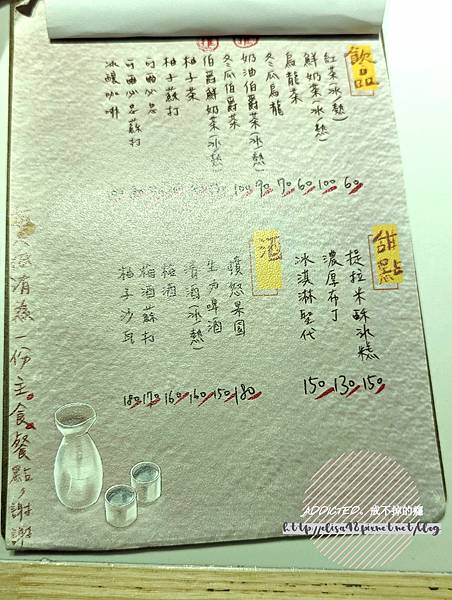 飲品
紅茶(冰.熱) 60
鮮奶茶(冰.熱) 100
烏龍茶 60
冬瓜烏龍 70
奶油伯爵茶(冰.熱) 90
冬瓜伯爵茶 100
伯爵鮮奶茶(冰.熱)
柚子茶
柚子蘇打
可爾必思
可爾必思蘇打
冰釀咖啡
推
推
甜點
提拉米酥冰糕 150
濃厚布丁 130
冰淇淋聖代 150
酒
憤怒果園 180
生力啤酒 150
清酒(冰.熱) 160
梅酒 160
梅酒蘇打 170
柚子沙瓦 180
低消為一份主食餐點,謝謝
ADDICTED。戒不掉的癮
http://elisa98.pixnet.net/blog